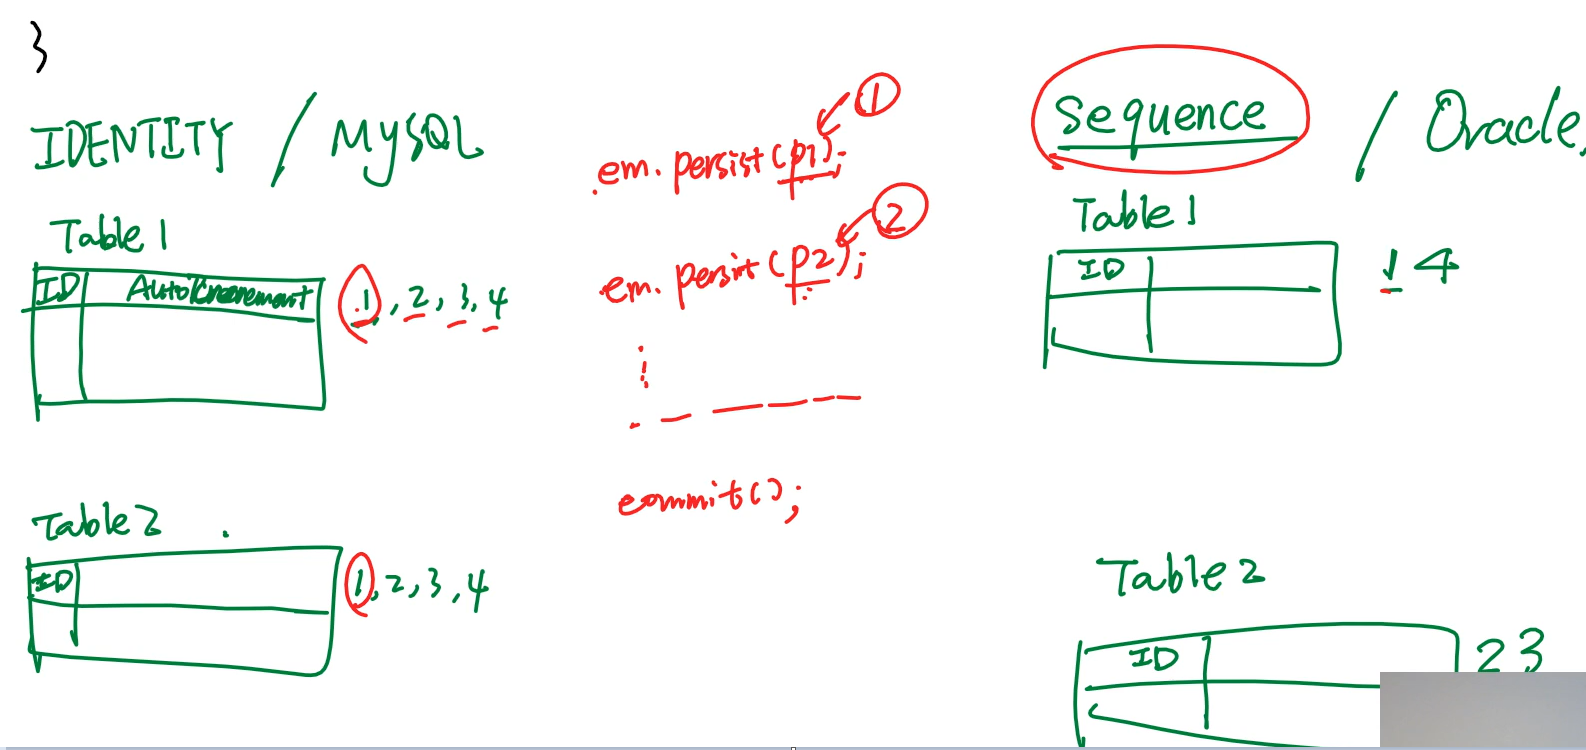 }
IDENTITY / MySQL
Table 1
ID AutoIncrement
1, 2, 3, 4
Table 2
ID
1, 2, 3, 4
em. persist (p1);
1
em. persist (p2);
2
commit();
Sequence / Oracle
Table 1
ID
1 4
Table 2
ID
2 3